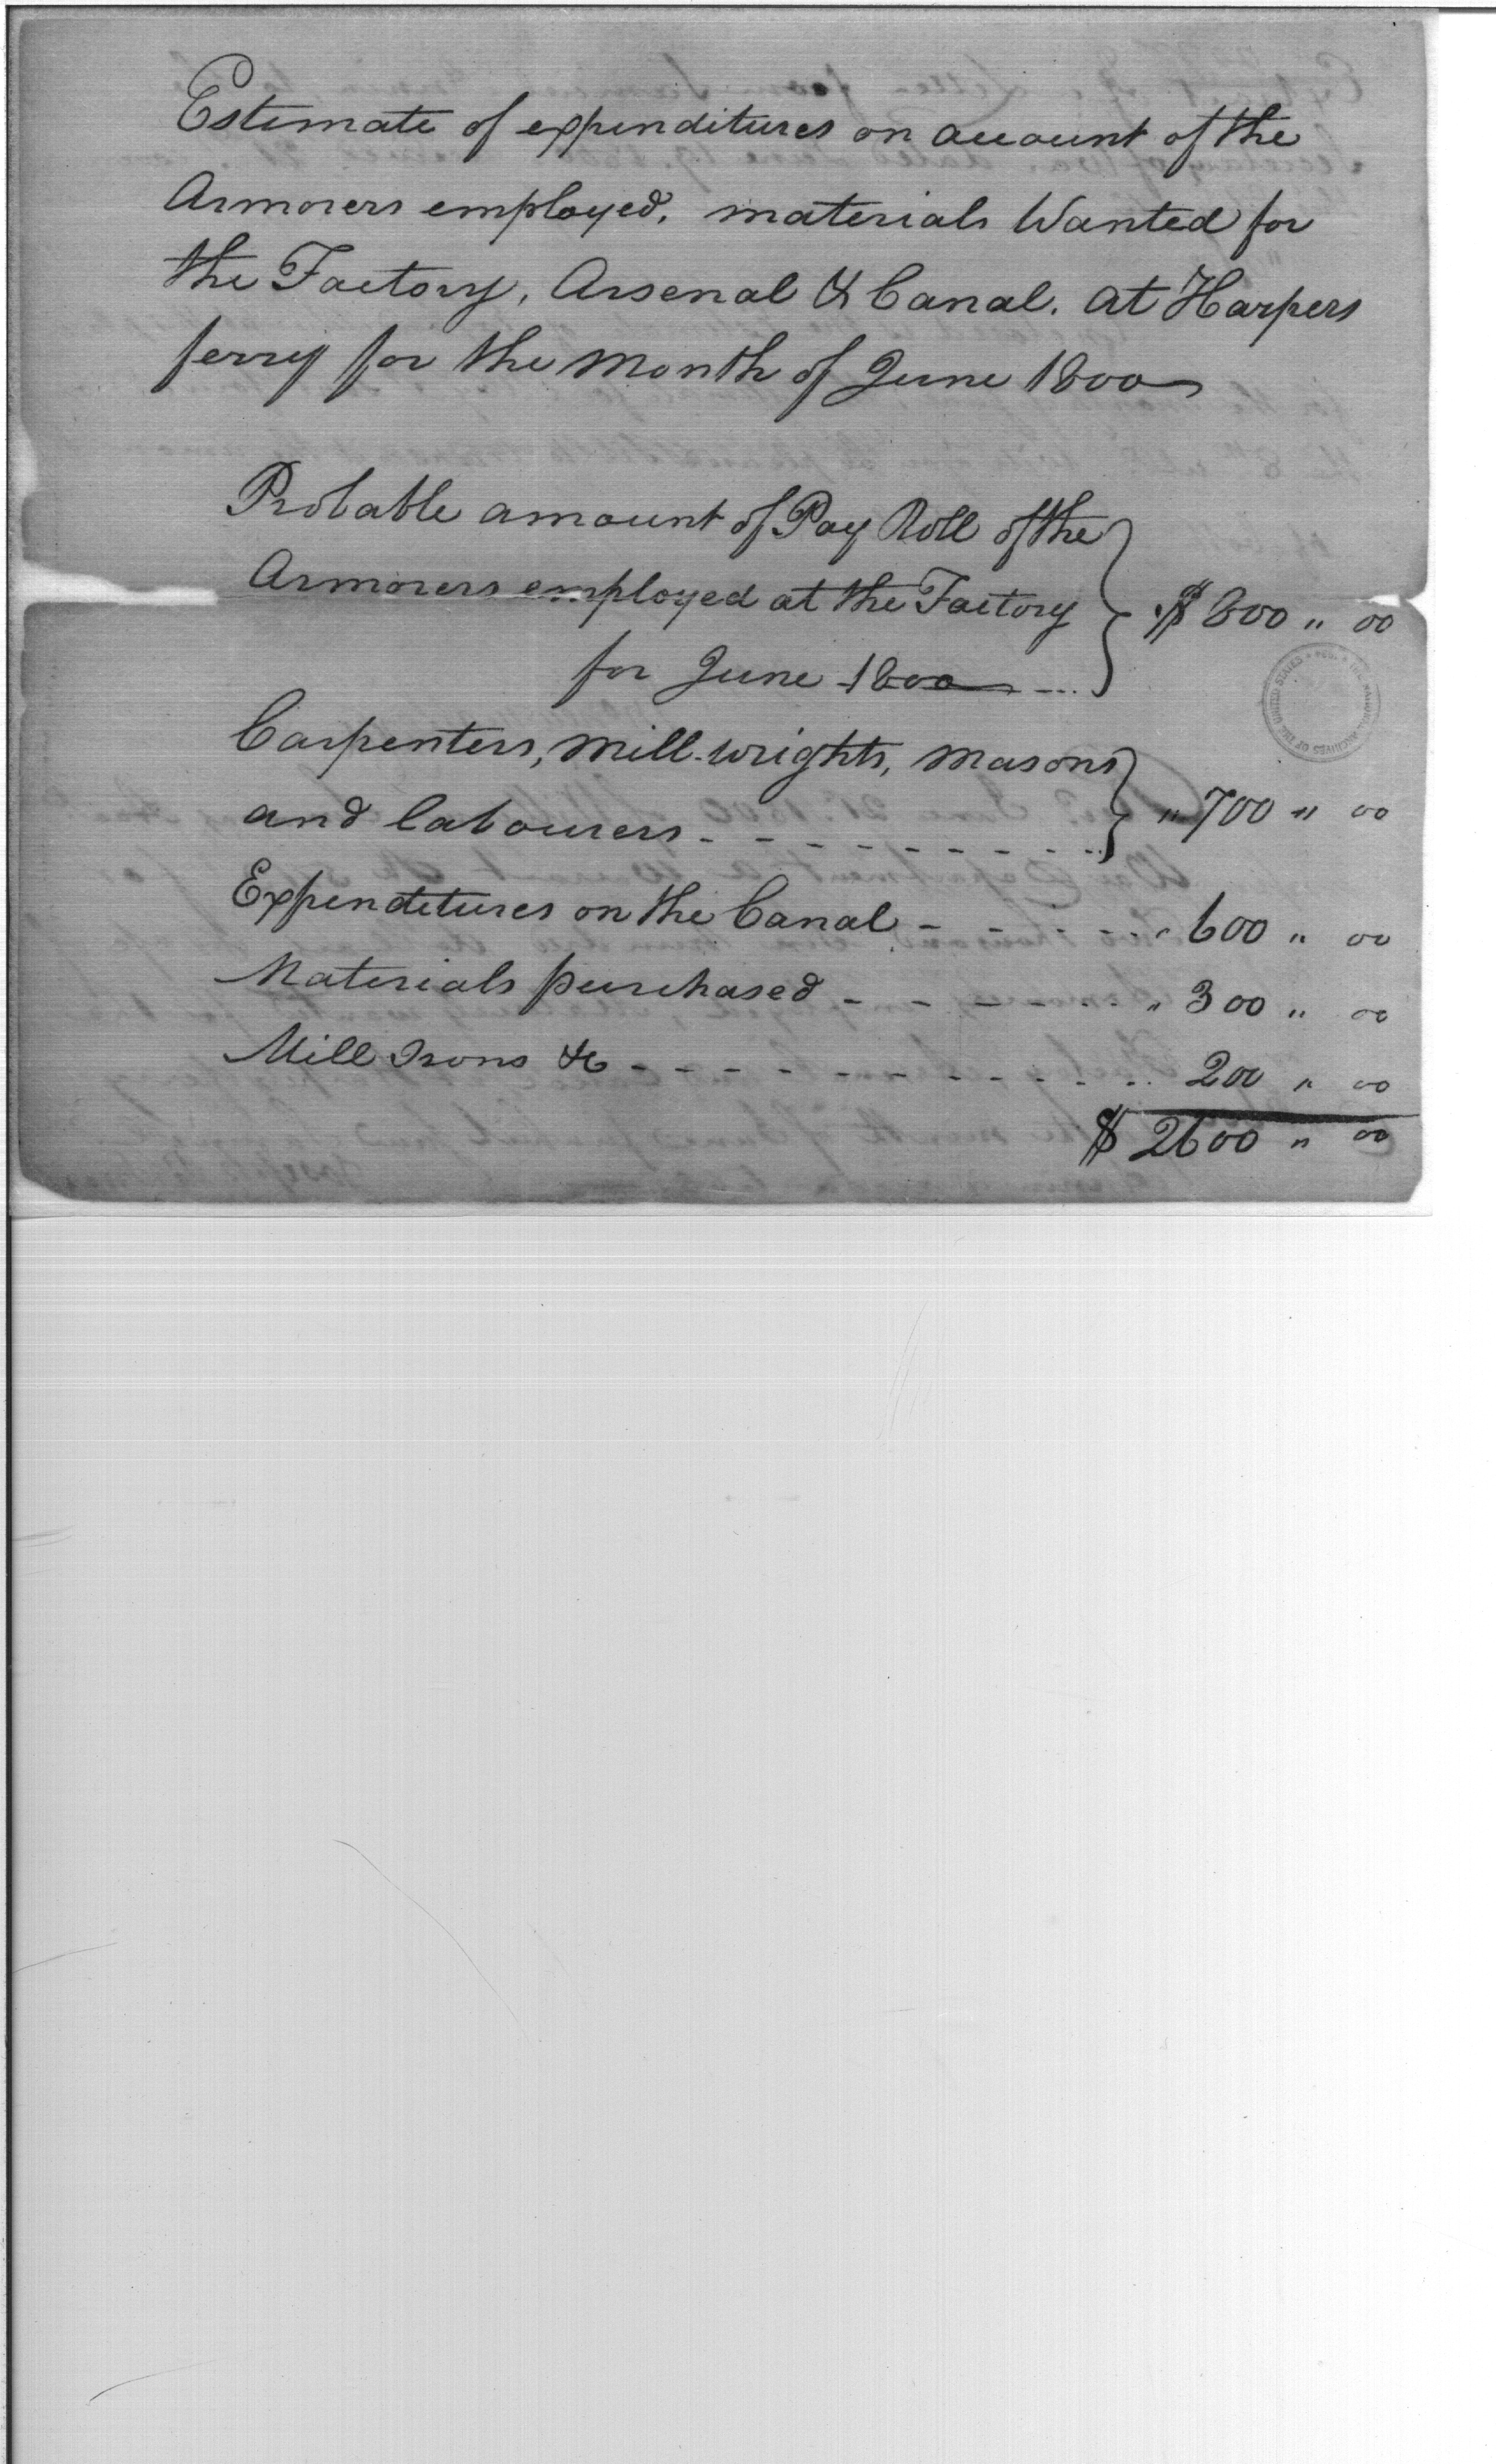 Estimate of expenditures on account of the
Armorers employed. materials Wanted for
the Factory, Arsenal & Canal. at Harpers
ferry for the Month of June 1800
Probable amount of Pay Roll of the
Armorers employed at the Factory
for June 1800 --- $ 800 " 00
Carpenters, Mill-wrights, Masons
and labourers - - - - - - - - - " 700 " 00
Expenditures on the Canal - - - - - - " 600 " 00
Materials purchased - - - - - - - " 300 " 00
Mill Irons &c - - - - - - - - - - - 200 " 00
$ 2600 " 00
THE NATIONAL ARCHIVES OF THE UNITED STATES